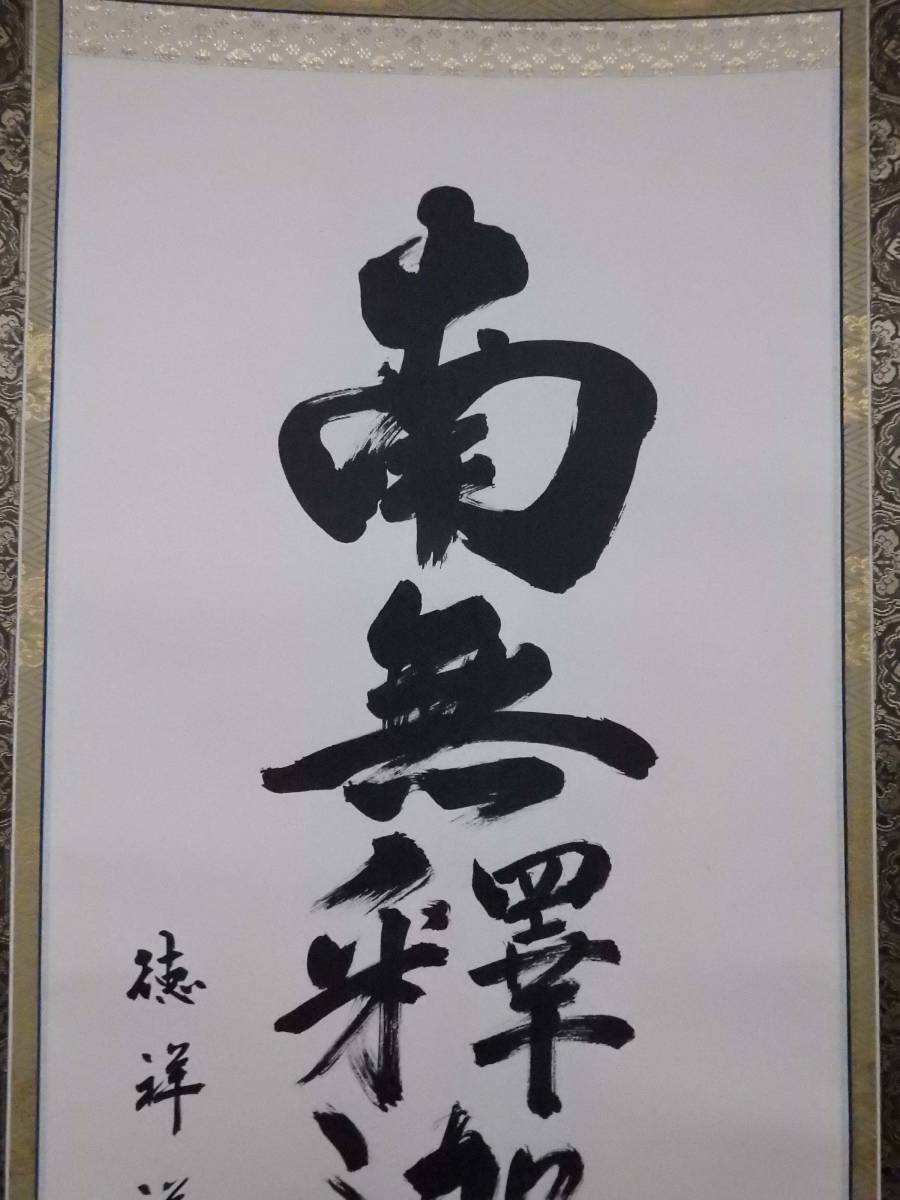 南無釋迦
徳祥